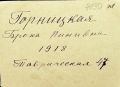 Горницкая
Броня Пиневна
1918
Таврическая 47